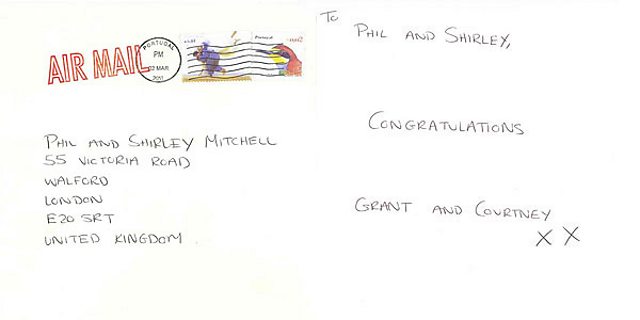 AIR MAIL
PORTUGAL
PM
02 MAR
2011
Portugal
PHIL AND SHIRLEY MITCHELL
55 VICTORIA ROAD
WALFORD
LONDON
E20 5RT
UNITED KINGDOM
TO
PHIL AND SHIRLEY,
CONGRATULATIONS
GRANT AND COURTNEY
X X